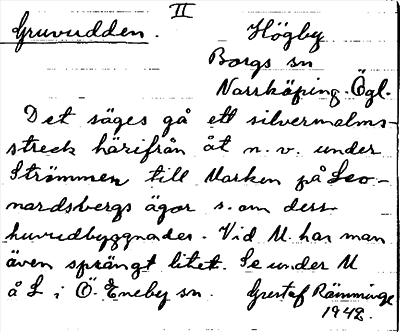 II
Gruvudden. Högby
Borgs sn
Norrköping. Ögl.
Det säges gå ett silvermalms-
streck härifrån åt n.v. under
Strömmen till Marken på Leo-
nardsbergs ägor s. om dess
huvudbyggnader. Vid M. har man
även sprängt litet. Se under M
å L i Ö. Eneby sn. Gustaf Rämminge
1942.